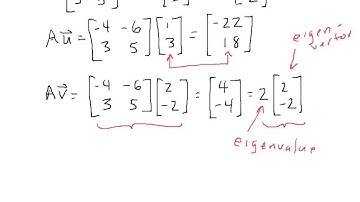 A u⃗ = [-4 -6; 3 5] [1; 3] = [-22; 18]
eigen-
vector
A v⃗ = [-4 -6; 3 5] [2; -2] = [4; -4] = 2 [2; -2]
eigenvalue